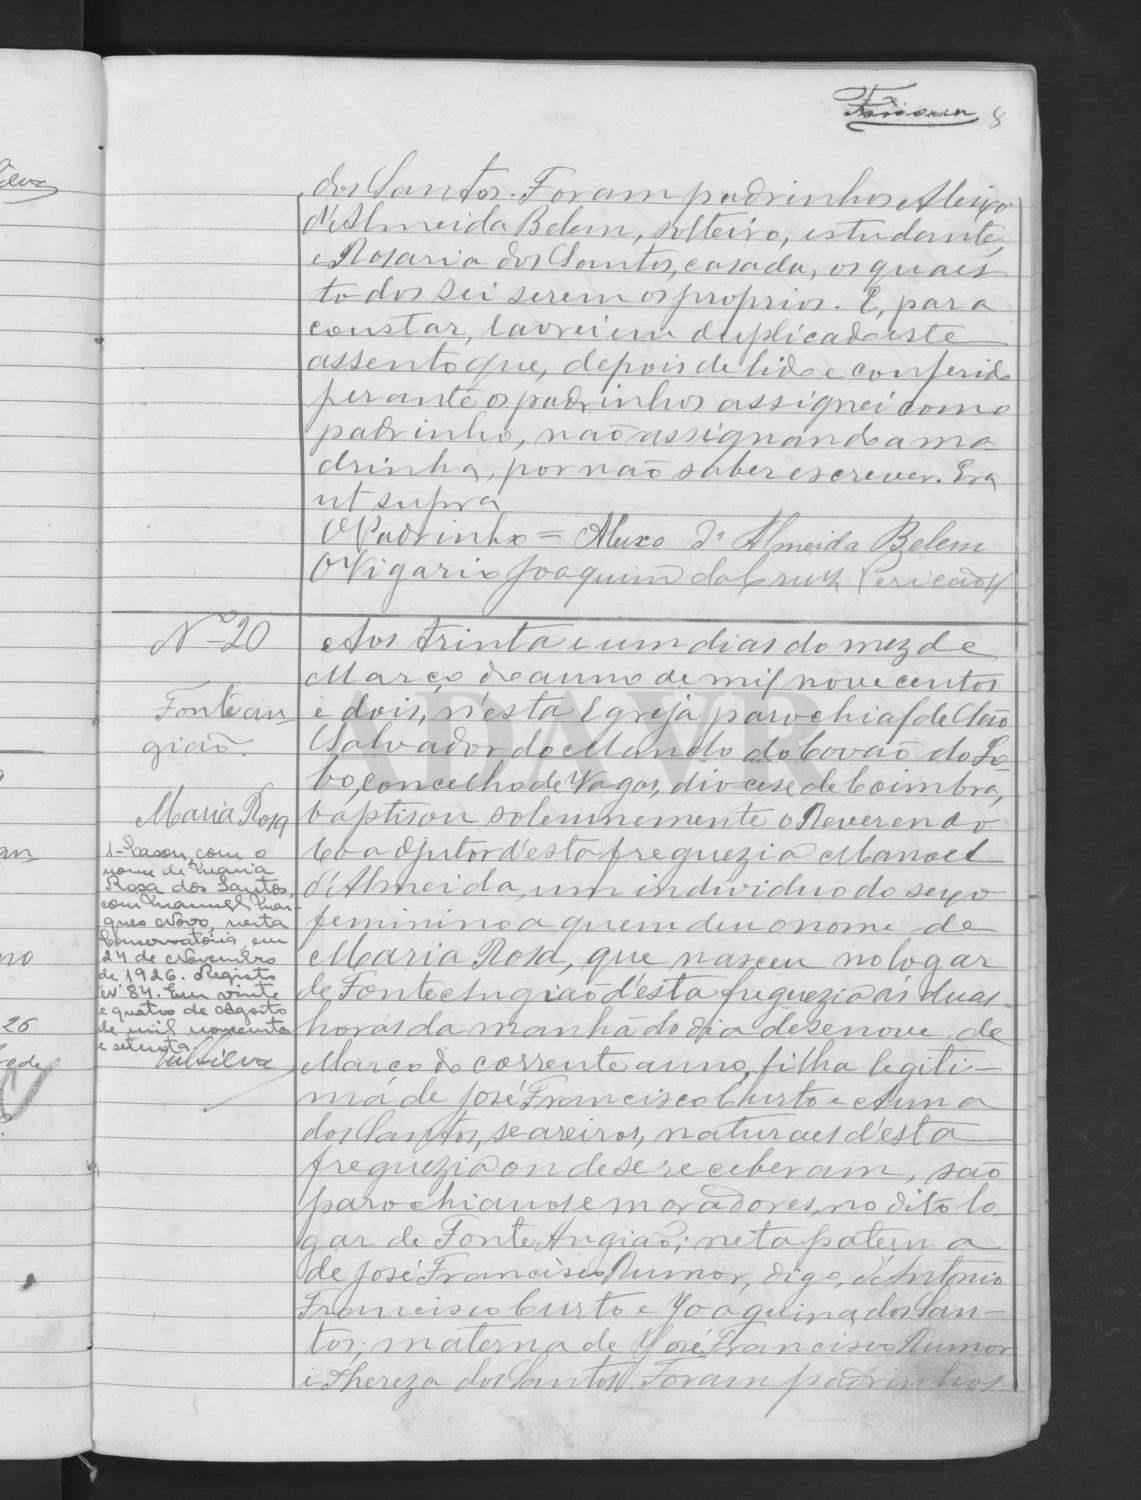 8
dos Santos. Foram padrinhos Aleixo
d'Almeida Belem, solteiro, estudante,
e Rosaria dos Santos, casada, os quaes
todos sei serem os proprios. E, para
constar, lavrei em duplicado este
assento que, depois de lido e conferido
perante os padrinhos assignei com o
padrinho, não assignando a ma-
drinha, por não saber escrever. Era
ut supra
O Padrinho = Aleixo d'Almeida Belem
O Vigario Joaquim da Cruz
Nº 20
Fonte an-
gião.
Maria Rosa
1- Casou, com o
nome de Maria
Rosa dos Santos,
com Manuel Mar-
ques Novo, nesta
Conservatória, em
24 de Novembro
de 1926. Registo
Nº 84. Em vinte
e quatro de Agosto
de mil novecentos
e setenta.
Aos trinta e um dias do mez de
Março do anno de mil nove centos
e dois, n'esta Egreja parochial de São
Salvador do Mundo do Covão do Lo-
bo, concelho de Vagos, diocese de Coimbra,
baptisou solemnemente o Reverendo
Coadjutor d'esta freguezia Manoel
d'Almeida, um individuo do sexo
feminino a quem deu o nome de
Maria Rosa, que nasceu no logar
de Fonte Angião d'esta freguezia ás duas
horas da manhã do dia desenove de
Março do corrente anno, filha legiti-
ma de José Francisco Curto e Anna
dos Santos, seareiros, naturaes d'esta
freguezia onde se receberam, são
parochianos e moradores, no dito lo-
gar de Fonte Angião; neta paterna
de José Francisco Rumor, digo, d'Antonio
Francisco Curto e Joaquina dos San-
tos; materna de José Francisco Rumor
e Thereza dos Santos. Foram padrinhos
ADAVR